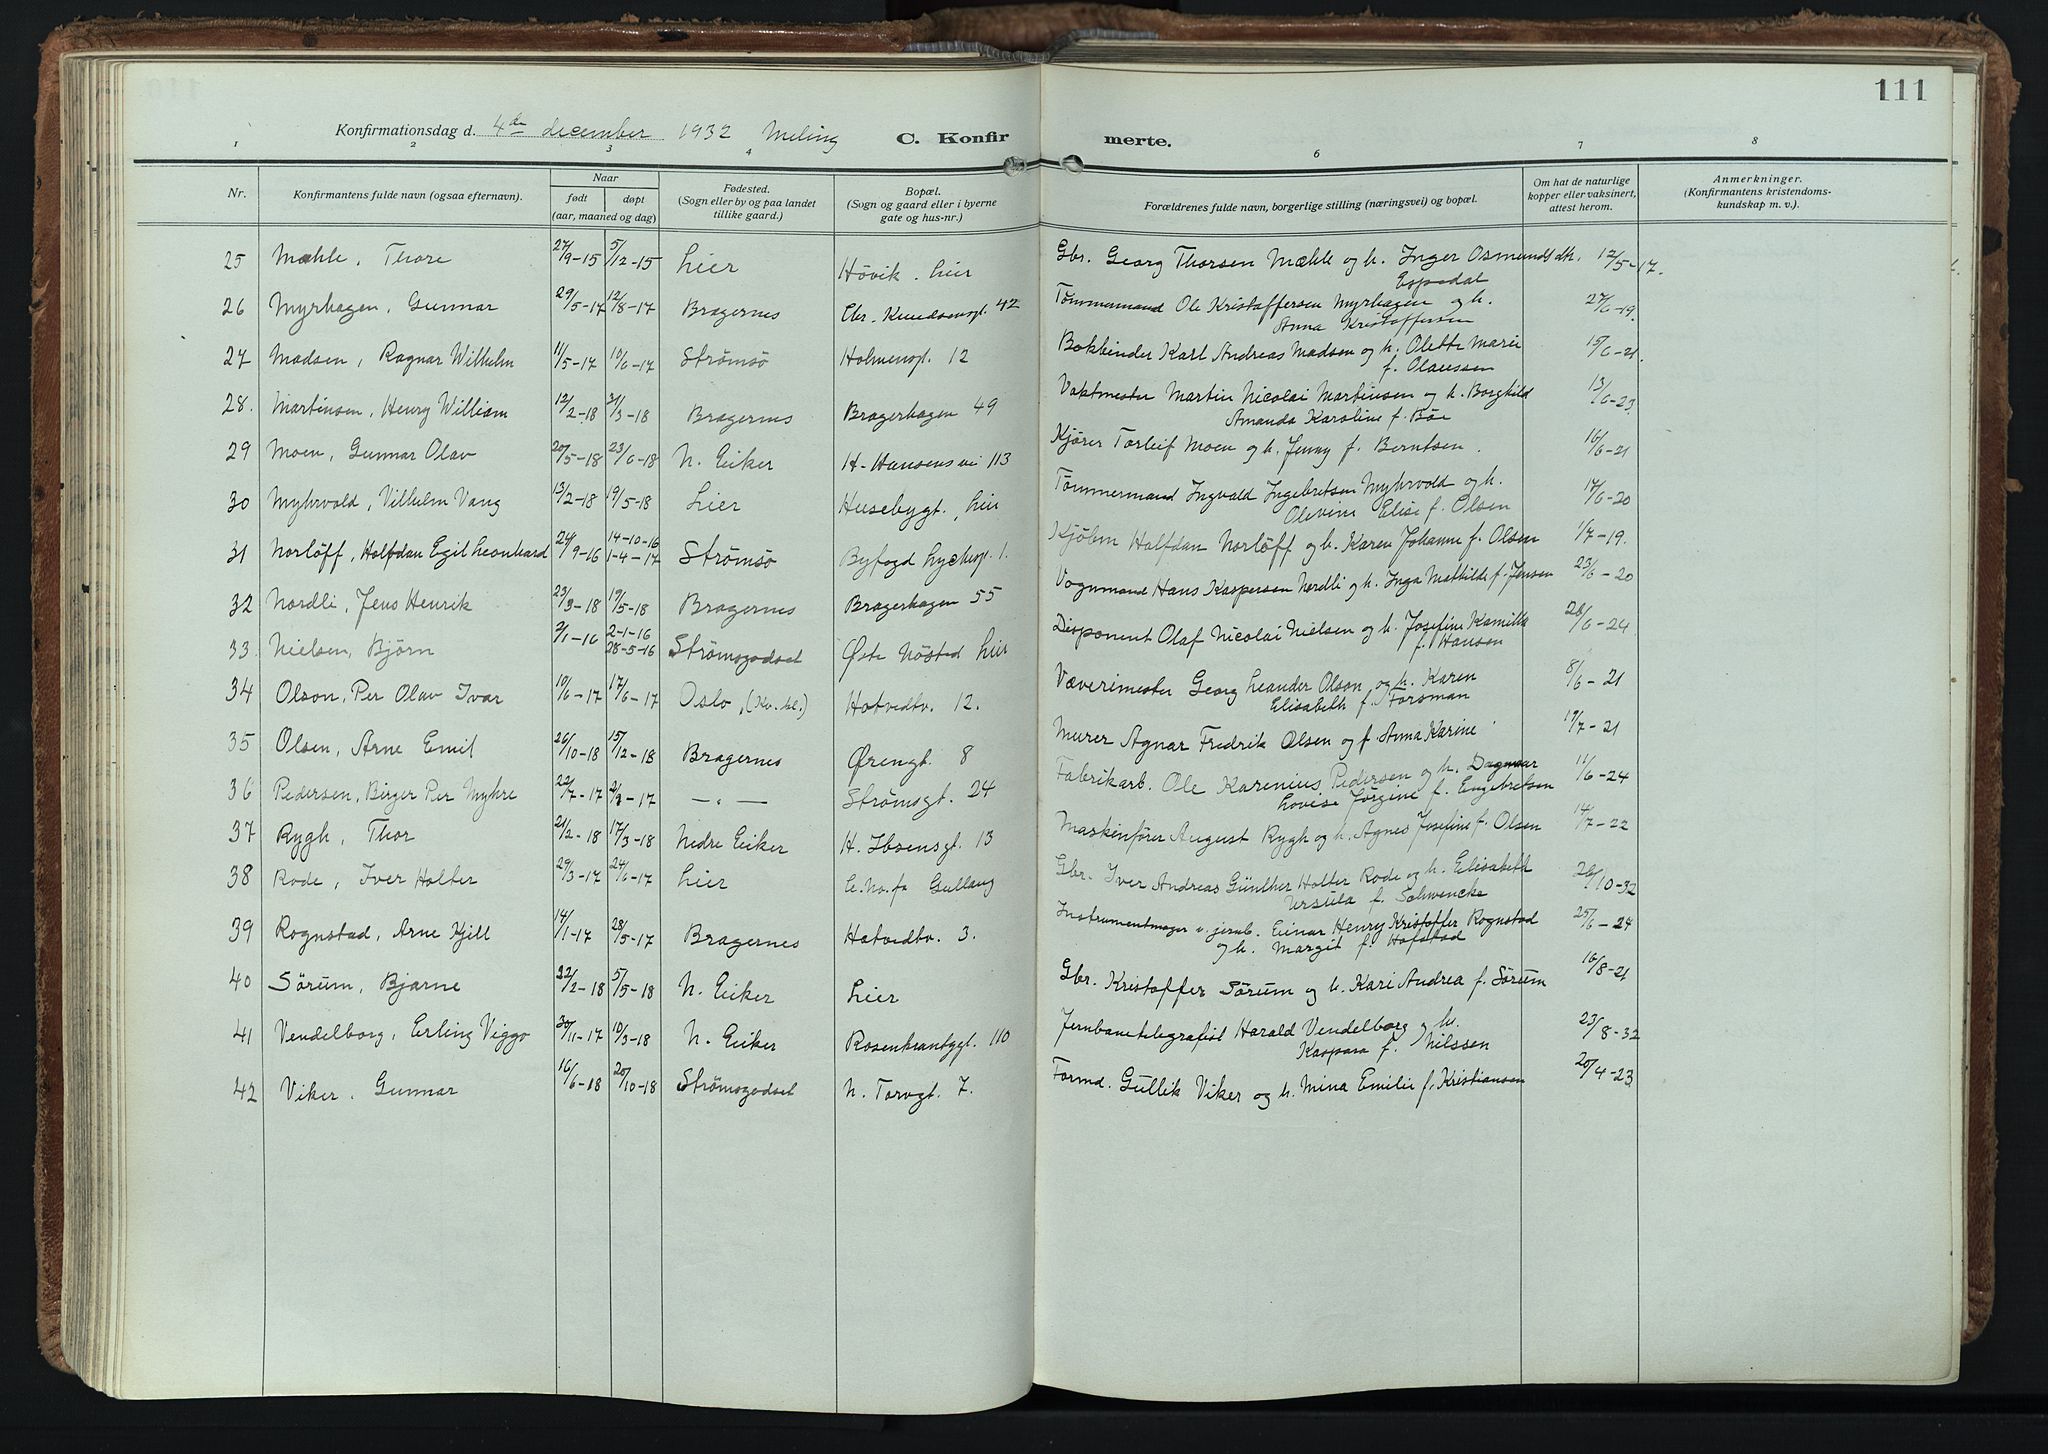 111
Konfirmationsdag d. 4de december 1932 Meling C. Konfirmerte.
1 2 3 4 6 7 8
Nr. Konfirmantens fulde navn (ogsaa efternavn). Naar født døpt (aar, maaned og dag) Fødested. (Sogn eller by og paa landet tillike gaard.) Bopæl. (Sogn og gaard eller i byerne gate og hus-nr.) Forældrenes fulde navn, borgerlige stilling (næringsvei) og bopæl. Om hat de naturlige kopper eller vaksinert, attest herom. Anmerkninger. (Konfirmantens kristendomskundskap m. v.).
25 Mæhle, Thore 27/9-15 5/12-15 Lier Høvik. Lier Gbr. Georg Thorsen Mæhle og h. Inger Osmundsdtr. Espedal 12/5-17.
26 Myrhagen, Gunnar 29/5-17 12/8-17 Bragernes Chr. Knudsensgt. 42 Tømmermand Ole Kristoffersen Myrhagen og h. Anna Kristoffersen 27/6-19.
27 Madsen, Ragnar Wilhelm 11/5-17 10/6-17 Strømsø Holmensgt. 12 Bokbinder Karl Andreas Madsen og h. Olette Marie f. Olaussen 15/6-21.
28. Martinsen, Henry William 12/2-18 31/3-18 Bragernes Bragerhagen 49 Vaktmester Martin Nicolai Martinsen og h. Borghild Amanda Karoline f. Bøe 13/6-23.
29 Moen, Gunnar Olav 20/5-18 23/6-18 N. Eiker H. Hansens vei 113 Kjører Torleif Moen og h. Jenny f. Berntsen. 16/6-21
30 Myhrvold, Vilhelm Vang 13/2-18 19/5-18 Lier Husebygt., Lier Tømmermand Ingvald Ingebretsen Myhrvold og h. Olevine Elise f. Olsen 17/6-20
31 Norløff, Halfdan Egil Leonhard 24/9-16 14-10-16 1-4-17 Strømsø Byfogd Lychesgt. 1. Kjøbm Halfdan Norløff og h. Karen Johanne f. Olsen 1/7-19.
32 Nordli, Jens Henrik 23/3-18 19/5-18 Bragernes Bragerhagen 55 Vognmand Hans Kaspersen Nordli og h. Inga Mathilde f. Jensen 23/6-20
33. Nielsen, Bjørn 2/1-16 2-1-16 28-5-16 Strømsgodset Øste Nøsted Lier Disponent Olaf Nicolai Nielsen og h. Josefine Kamilla f. Hansen 28/6-24
34 Olson, Per Olav Ivar 10/6-17 17/6-17 Oslo, (Kv. kl.) Hotvedtv. 12. Væverimester Georg Leander Olson og h. Karen Elisabeth f. Forsman 8/6-21
35 Olsen, Arne Emil 26/10-18 15/12-18 Bragernes Ørengt. 8 Murer Agnar Fredrik Olsen og f. Anna Karine 19/7-21
36 Pedersen, Birger Per Myhre 22/7-17 2/9-17 —„— Strømsgt. 24 Fabrikarb. Ole Karenius Pedersen og h. Dagmar Lovise Jørgine f. Engebretsen 11/6-24
37 Rygh, Thor 21/2-18 17/3-18 Nedre Eiker H. Ibsensgt. 13 Maskinfører August Rygh og h. Agnes Josefine f. Olsen 14/7-22
38 Rode, Iver Holter 29/3-17 24/6-17 Lier Gullaug Gbr. Iver Andreas Günther Holter Rode og h. Elisabeth Ursula f. Schwencke 26/10-32
39 Rognstad, Arne Kjell 14/1-17 28/5-17 Bragernes Hotvedtv. 3. Instrumentmager v. jernb. Einar Henry Kristoffer Rognstad og h. Margit f. Hofstad 25/6-24
40 Sørum, Bjarne 22/2-18 5/5-18 N. Eiker Lier Gbr. Kristoffer Sørum og h. Kari Andrea f. Sørum 16/8-21
41 Vendelborg, Erling Viggo 30/11-17 10/3-18 N. Eiker Rosenkrantzgt. 110 Jernbanetelegrafist Harald Vendelborg og h. Kaspara f. Nilssen 23/8-32
42 Viker, Gunnar 16/6-18 20/10-18 Strømsgodset N. Torvgt. 7. Formd. Gullik Viker og h. Mina Emilie f. Kristiansen 20/4-23.